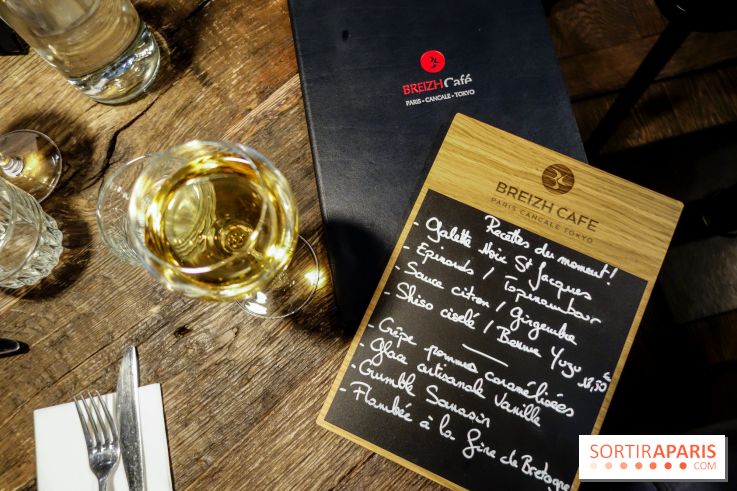 BREIZH Café
PARIS • CANCALE • TOKYO
BREIZH CAFE
PARIS CANCALE TOKYO
Recettes du moment!
- Galette Noix St Jacques
- Epinards / Topinambour
- Sauce citron / Gingembre
- Shiso ciselé / Beurre Yuzu 18,50 €
- Crêpe pommes caramélisées
- Glace artisanale Vanille
- Crumble Sarrasin
- Flambée à la fine de Bretagne
SORTIRAPARIS
.COM